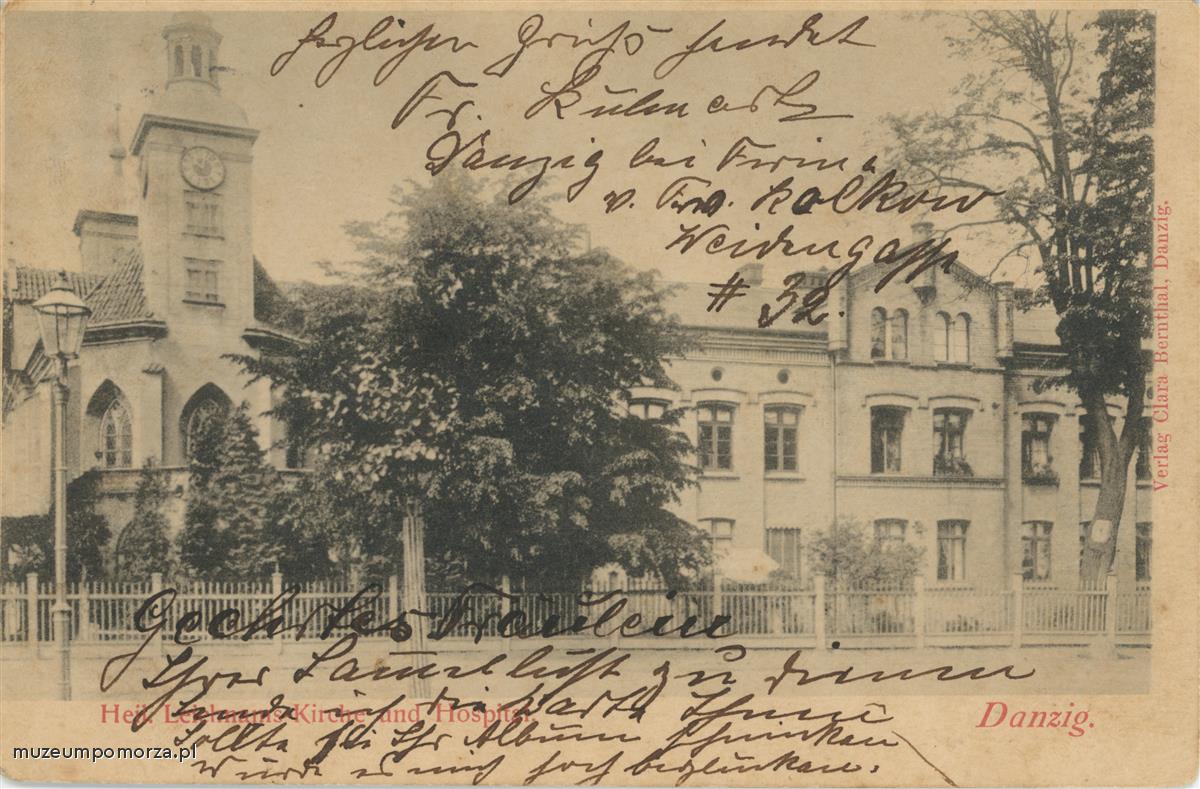 herzlichen Gruß sendet
Fr. Kulmartz
Danzig bei Frin
v. Frv. Kolkow
Weidengasse
# 32.
Verlag Clara Bernthal, Danzig.
Geehrtes Fräulein
Ihrer Sammellust zu dienen
sende ich die Karte Ihnen
Heil. Leichnams-Kirche und Hospital.
Danzig.
sollte sie Ihr Album schmücken
würde es mich hoch beglücken.
muzeumpomorza.pl